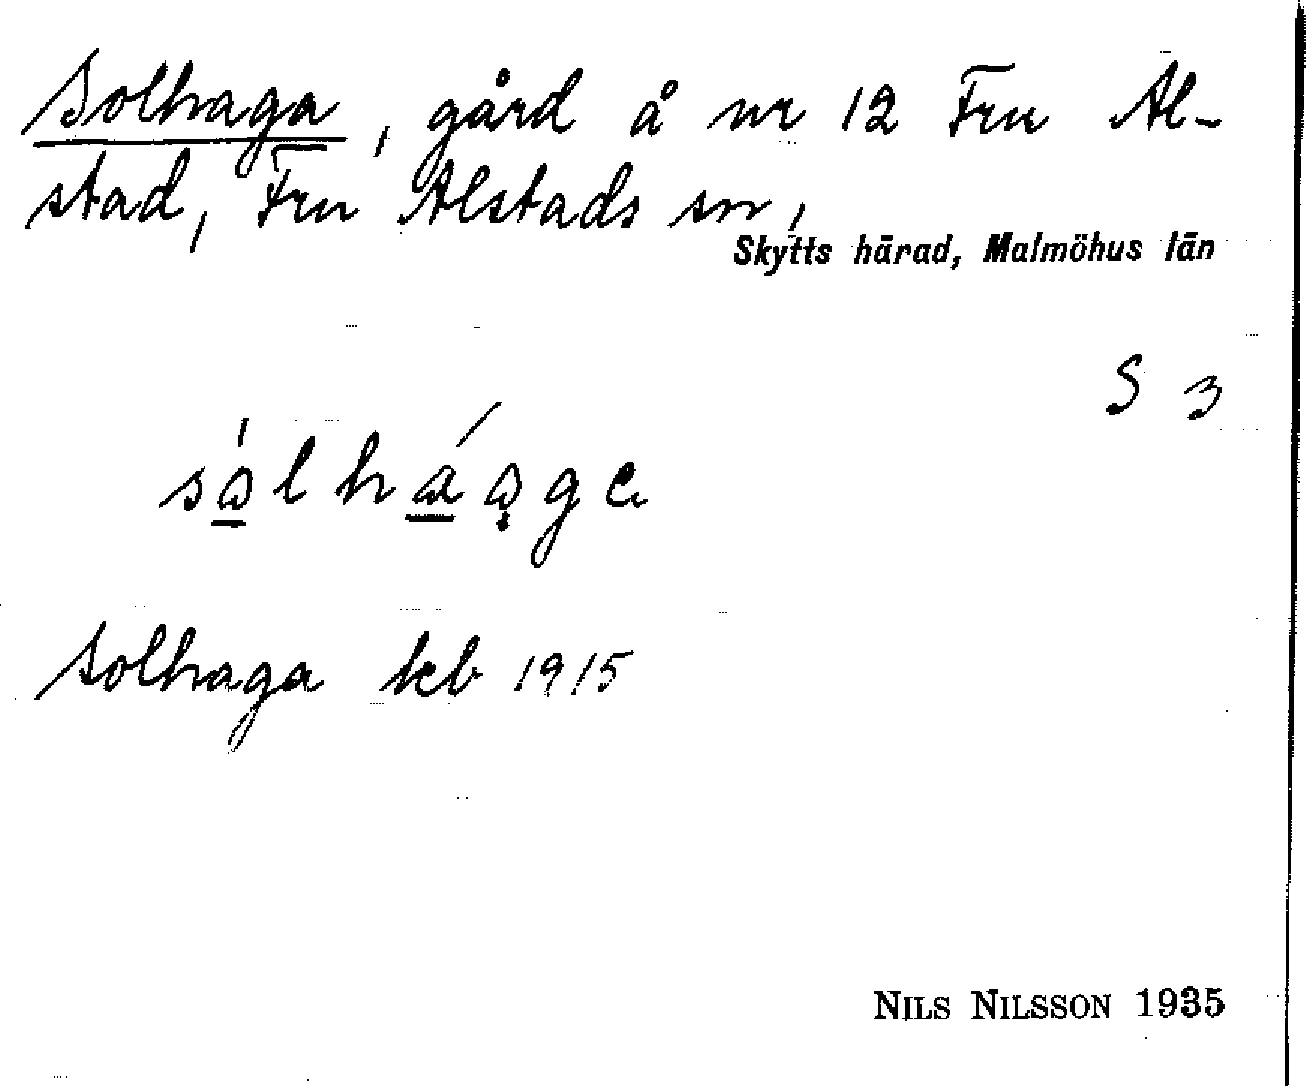 Solhaga, gård å nr 12 Fru Al-
stad, Fru Alstads sn,
Skytts härad, Malmöhus län
S 3
Solhaga kb 1915
NILS NILSSON 1935